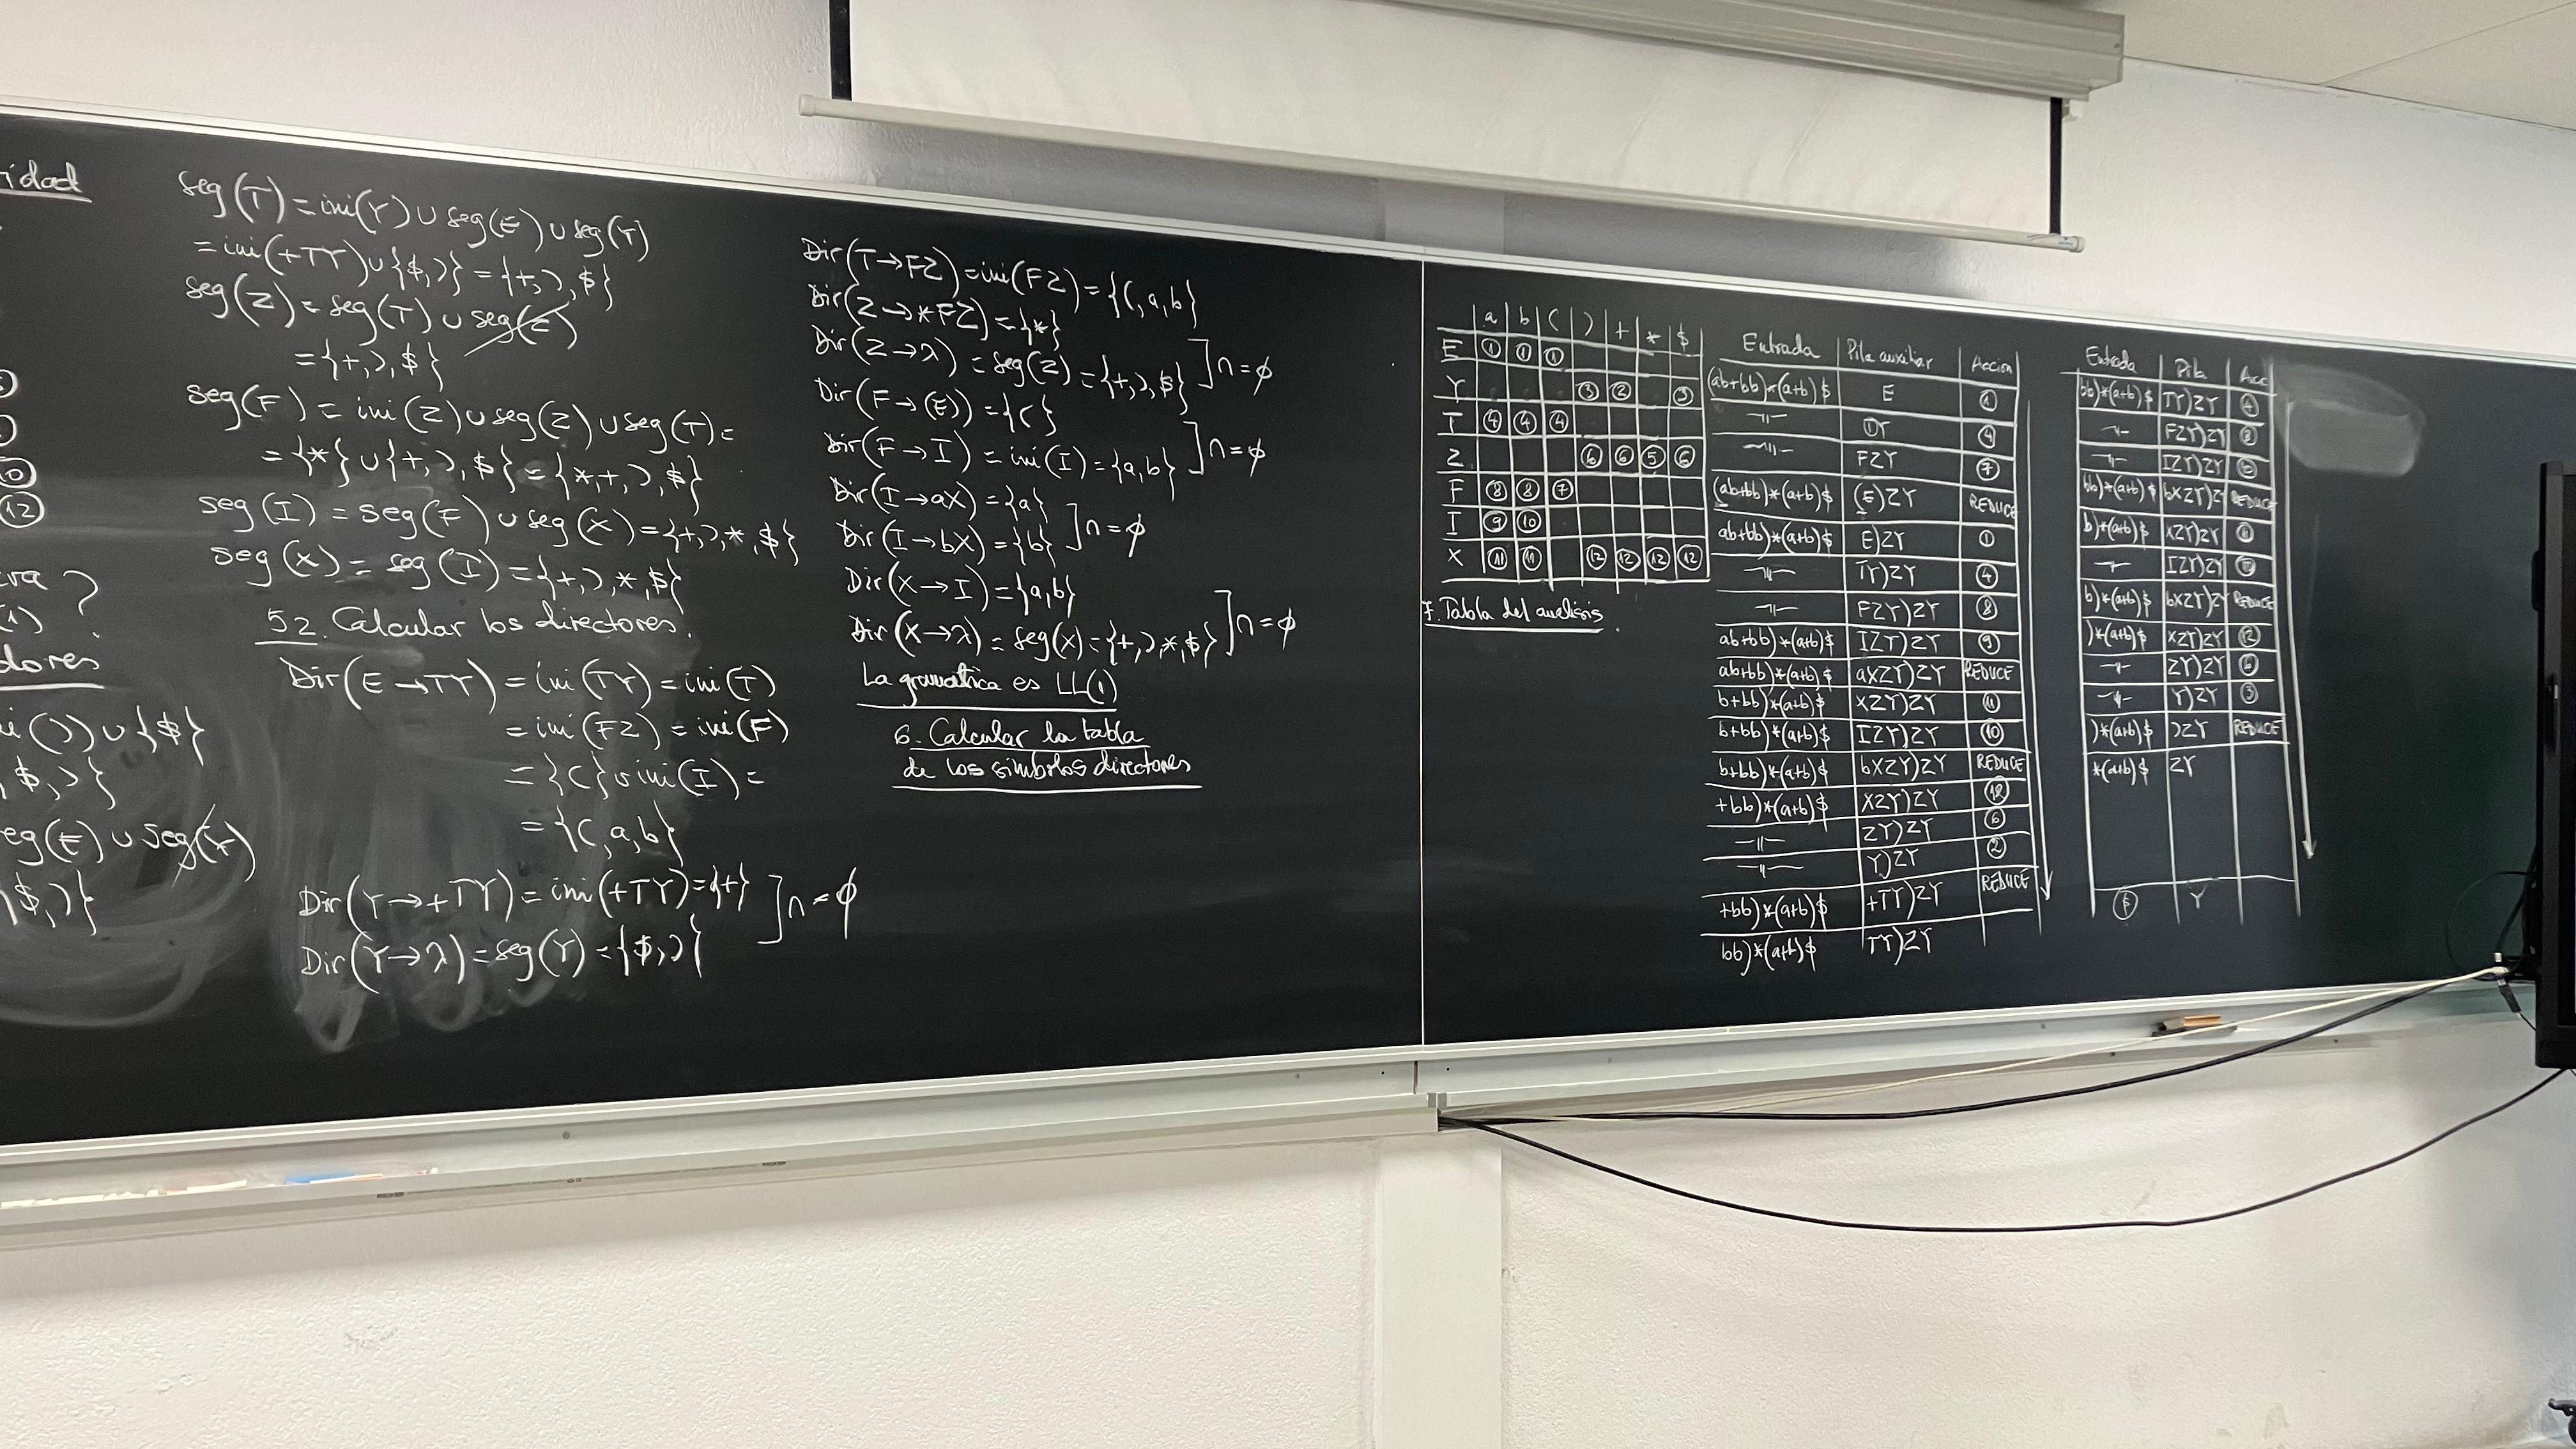 idad
0
12
dores
seg(T)=ini(Y)∪seg(E)∪seg(Y)
=ini(+TY)∪{$,)}={+,),$}
seg(Z)=seg(T)∪seg(Z)
={+,),$}
seg(F)=ini(Z)∪seg(Z)∪seg(T)=
={*}∪{+,),$}={*,+,),$}
seg(I)=seg(F)∪seg(X)={+,),*,$}
seg(X)=seg(I)={+,),*,$}
52. Calcular los directores.
Dir(E→TY)=ini(TY)=ini(T)
=ini(FZ)=ini(F)
={(}∪ini(I)=
={(,a,b}
Dir(Y→+TY)=ini(+TY)={+}
Dir(Y→λ)=seg(Y)={$,)} ]∩=∅
Dir(T→FZ)=ini(FZ)={(,a,b}
Dir(Z→*FZ)={*}
Dir(Z→λ)=seg(Z)={+,),$} ]∩=∅
Dir(F→(E))={(}
Dir(F→I)=ini(I)={a,b} ]∩=∅
Dir(I→aX)={a}
Dir(I→bX)={b} ]∩=∅
Dir(X→I)={a,b}
Dir(X→λ)=seg(X)={+,),*,$} ]∩=∅
La gramática es LL(1)
6. Calcular la tabla
de los símbolos directores
a b ( ) + * $
E 1 1 1
Y 3 2 3
T 4 4 4
Z 6 6 5 6
F 8 8 7
I 9 10
X 11 11 12 12 12 12
7. Tabla del análisis.
Entrada Pila auxiliar Accion
(ab+bb)*(a+b)$ E 1
-||- TY 4
-||- FZY 7
(ab+bb)*(a+b)$ (E)ZY REDUCE
ab+bb)*(a+b)$ E)ZY 1
-||- TY)ZY 4
-||- FZY)ZY 8
ab+bb)*(a+b)$ IZY)ZY 9
ab+bb)*(a+b)$ aXZY)ZY REDUCE
b+bb)*(a+b)$ XZY)ZY 11
b+bb)*(a+b)$ IZY)ZY 10
b+bb)*(a+b)$ bXZY)ZY REDUCE
+bb)*(a+b)$ XZY)ZY 12
-||- ZY)ZY 6
-||- Y)ZY 2
+bb)*(a+b)$ +TY)ZY REDUCE
bb)*(a+b)$ TY)ZY
Entrada Pila Acc
bb)*(a+b)$ TY)ZY 4
-||- FZY)ZY 8
-||- IZY)ZY 10
bb)*(a+b)$ bXZY)Z REDUCE
b)*(a+b)$ XZY)ZY 11
-||- IZY)ZY 10
b)*(a+b)$ bXZY)Z REDUCE
)*(a+b)$ XZY)ZY 12
-||- ZY)ZY 6
-||- Y)ZY 3
)*(a+b)$ )ZY REDUCE
*(a+b)$ ZY
$ Y